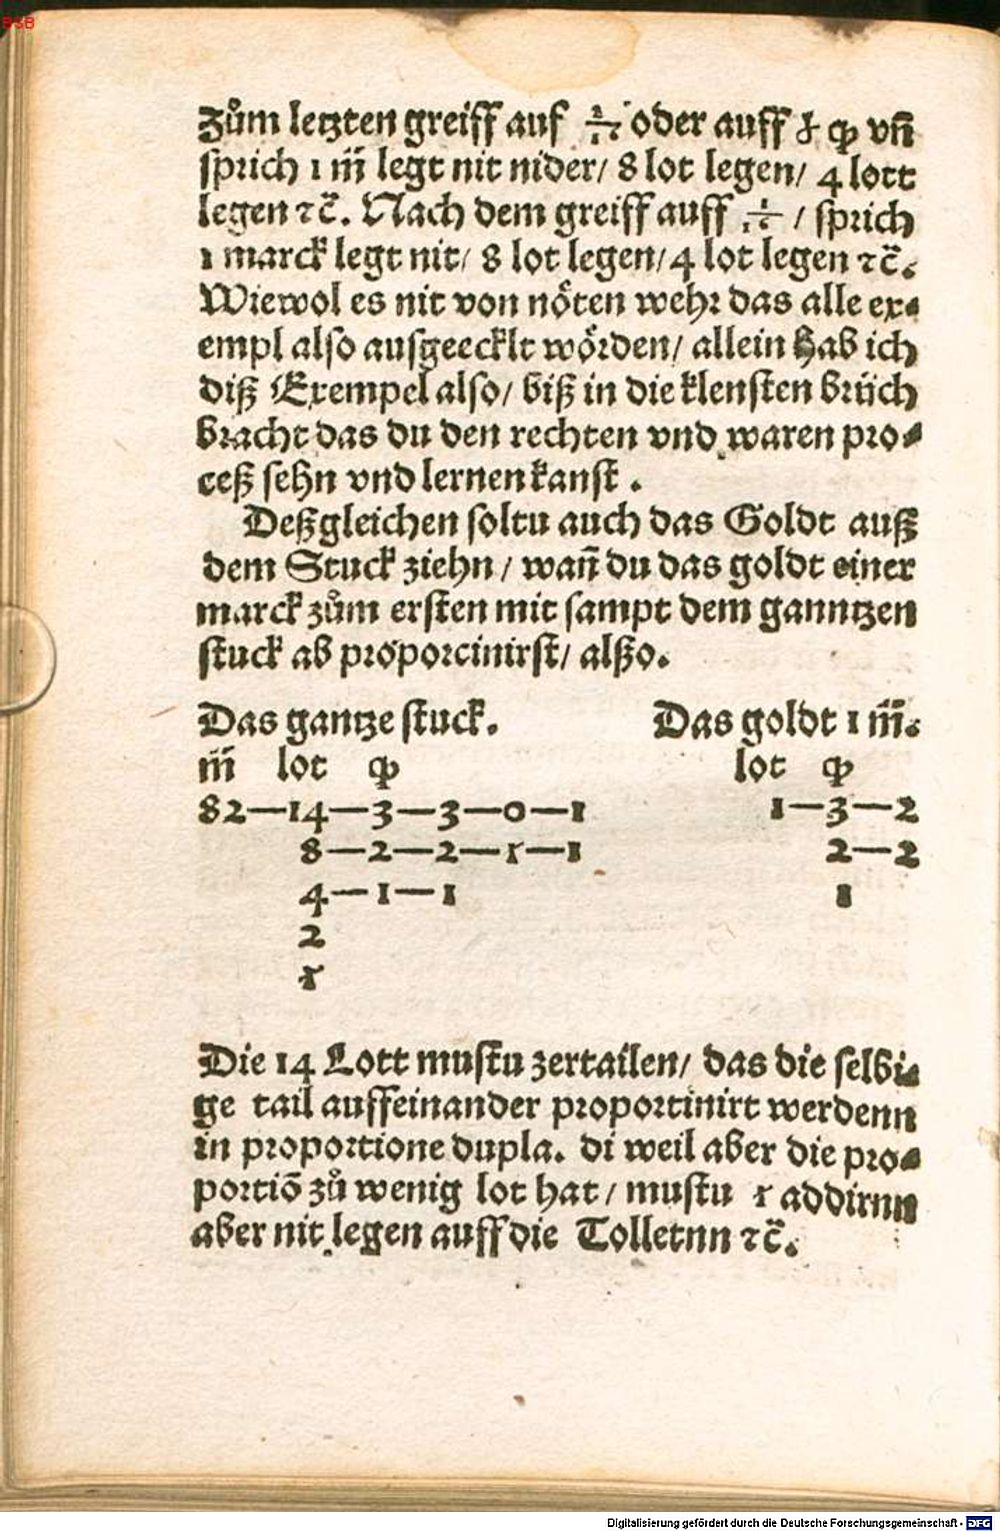 838
Zům letzten greiff auf oder auff qͥ vñ
sprich 1 m̃ legt nit nider/ 8 lot legen/ 4 lott
legen ⁊c̃. Nach dem greiff auff / sprich
1 marck legt nit/ 8 lot legen/ 4 lot legen ⁊c̃.
Wiewol es nit von nöten wehr das alle ex⸗
empl also ausgeecklt wörden/ allein Hab ich
diß Exempel also/ biß in die klensten brüch
bracht das du den rechten vnd waren pro⸗
ceß sehn vnd lernen kanst .
Deßgleichen soltu auch das Goldt auß
dem Stuck ziehn / wañ du das goldt einer
marck zům ersten mit sampt dem ganntzen
stuck ab proporcinirst/ alßo.
Das gantze stuck. Das goldt 1 m̃.
m̃ lot qͥ lot qͥ
82—14—3—3—0—1 1—3—2
8—2—2—1—1 2—2
4—1—1 1
2
1
Die 14 Lott mustu zertailen/ das die selbi⸗
ge tail auffeinander proportinirt werdenn
in proportione dupla. di weil aber die pro⸗
portiõ zů wenig lot hat / mustu 1 addirnn
aber nit legen auff die Tolletnn ⁊c̃.
Digitalisierung gefördert durch die Deutsche Forschungsgemeinschaft - DFG